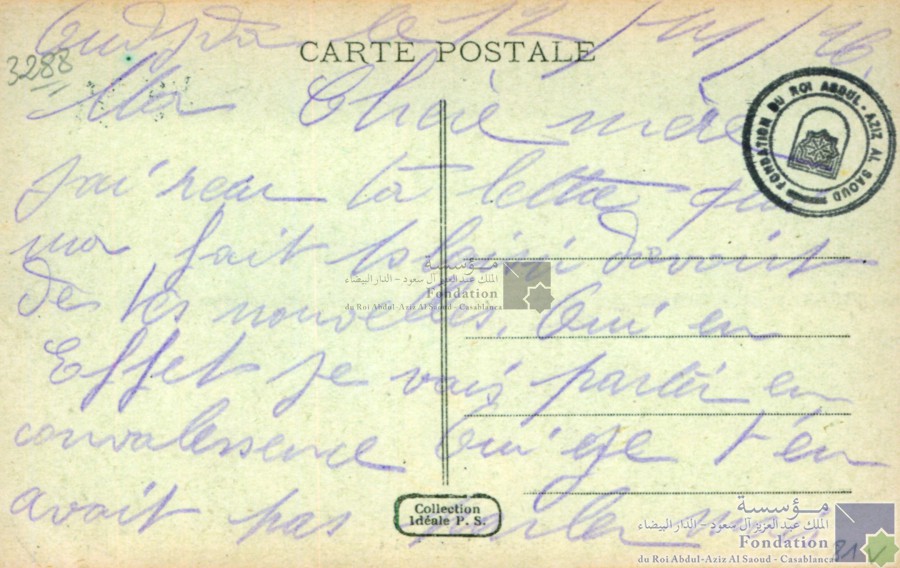 Oudjda le 12
CARTE POSTALE
3288
Ma Chère mère
J'ai reçu ta lettre qui
ma fait plaisir d'avoir
de tes nouvelles. Oui en
Effet je vais partir en
convalessence Oui si je t'én
avait pas parler
FONDATION DU ROI ABDUL-AZIZ AL SAOUD
مؤسسة
الملك عبد العزيز آل سعود - الدار البيضاء
Fondation
du Roi Abdul-Aziz Al Saoud - Casablanca
Collection
Idéale P. S.
مؤسسة
الملك عبد العزيز آل سعود - الدار البيضاء
Fondation
du Roi Abdul-Aziz Al Saoud - Casablanca